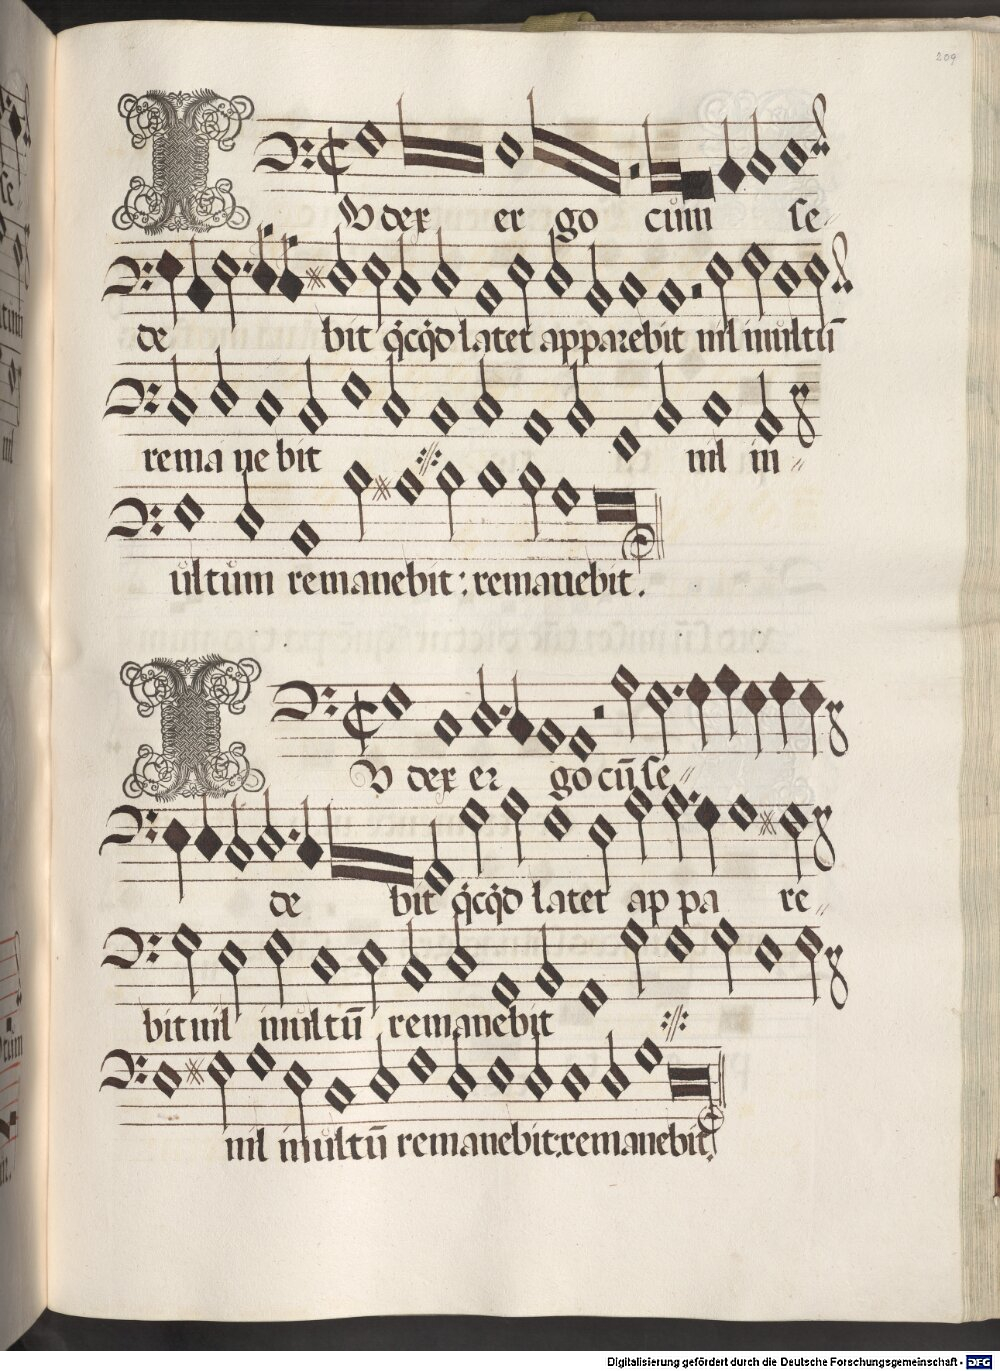 209
IVdex ergo cũm se
debit q̃cq̃d latet apparebit nil inultũ
remanebit nil in
ũltũm remanebit: remanebit.
IVdex ergo cũ se
debit q̃cq̃d latet appare
bit nil inũltũ remanebit
nil inũltũ remanebit: remanebit.
Digitalisierung gefördert durch die Deutsche Forschungsgemeinschaft - DFG